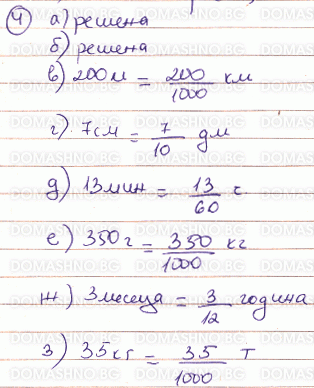 4 а) решена
б) решена
в) 200 м = 200/1000 км
г) 7 см = 7/10 дм
д) 13 мин = 13/60 ч.
е) 350 г = 350/1000 кг
ж) 3 месеца = 3/12 година
з) 35 кг = 35/1000 т
DOMASHNO.BG